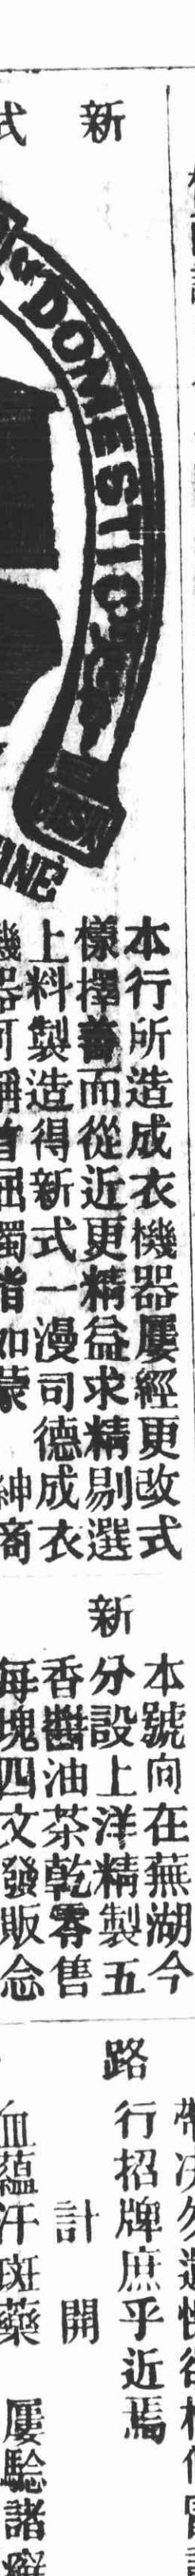 新
式
DOMESTIC
本行所造成衣機器屢經更改式
樣擇善而從近更精益求精剔選
上料製造得新式一漫司德成衣
新
本號向在蕪湖今
分設上洋精製五
香醬油茶乾零售
每塊四文發販念
路
行招牌庶乎近焉
計開
血蘊汗斑藥
屢驗諸